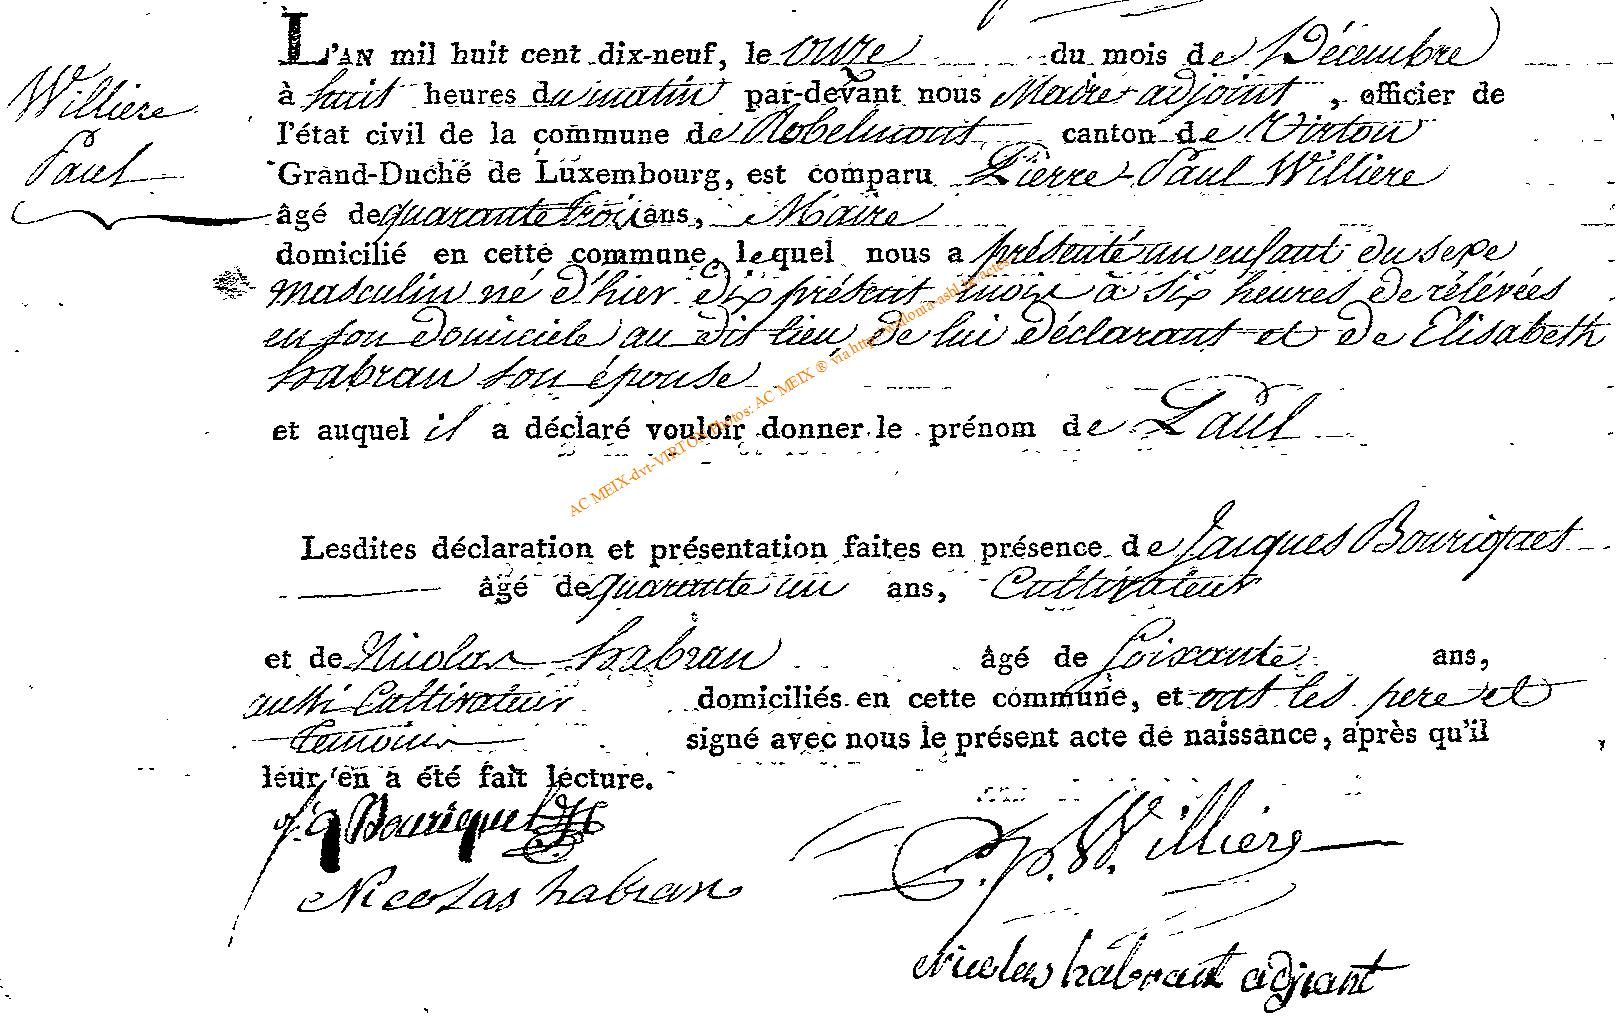 L'AN mil huit cent dix-neuf, le onze du mois de Décembre
à huit heures du matin par-devant nous Maire adjoint, officier de
l'état civil de la commune de Robelmont canton de Virton
Grand-Duché de Luxembourg, est comparu Pierre Paul Willière
âgé de quarante trois ans, Maire
domicilié en cette commune, lequel nous a présenté un enfant du sexe
masculin né d'hier dix présent mois à six heures de rélévées
en son domicile au dit lieu, de lui déclarant et de Elisabeth
habran son épouse
et auquel il a déclaré vouloir donner le prénom de Paul
Willière
Paul
Lesdites déclaration et présentation faites en présence de Jacques Bouriquet
âgé de quarante un ans, Cultivateur
et de Nicolas habran âgé de soixante ans,
aussi Cultivateur domiciliés en cette commune, et ont les pere et
temoins signé avec nous le présent acte de naissance, après qu'il
leur en a été fait lecture.
Bouriquet
P.p. Willière
Nicolas habran
Nicolas habrant adjoint
AC MEIX-dvt-VIRTON Photos: AC MEIX ® via